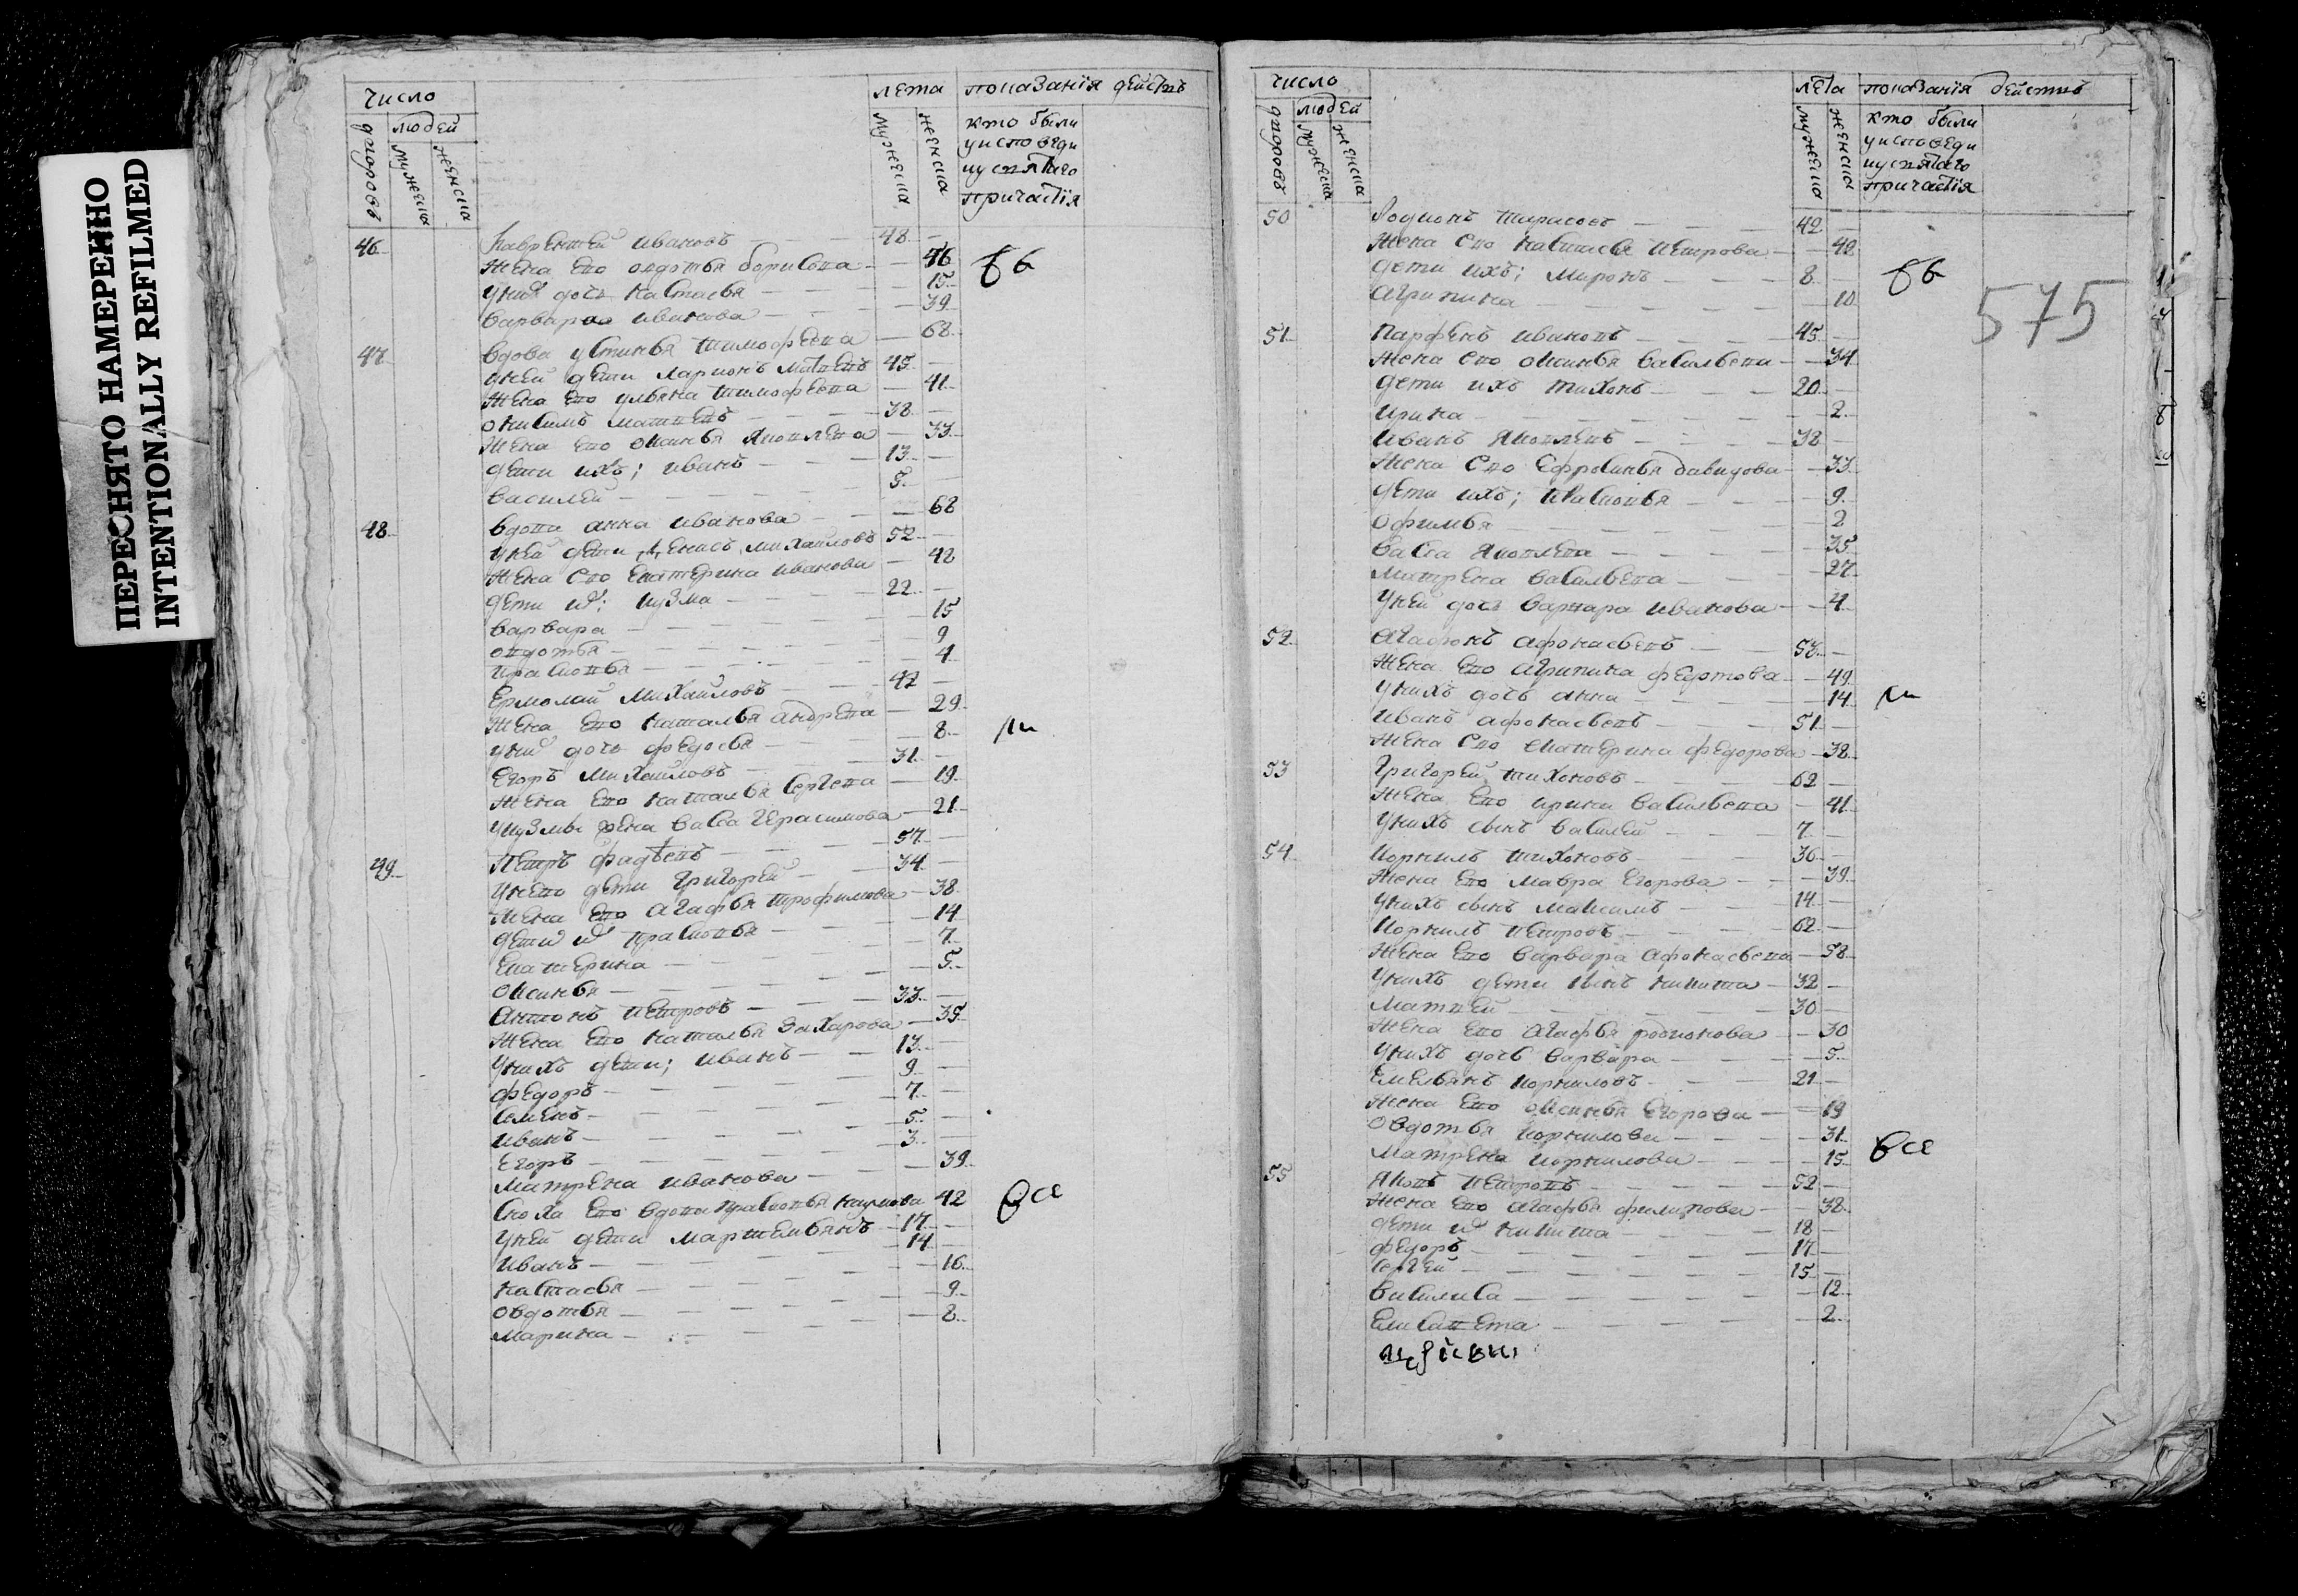 ПЕРЕСНЯТО НАМЕРЕННО
INTENTIONALLY REFILMED
число
лета показанїя действъ
дворовъ
людей
мужеска
женска
мужеска
женска
кто были
у исповеди
и у святаго
причастїя
46. Лаврентей Ивановъ 48.
жена ево овдотья борисова 46
у них дочь настасья 15.
варвара иванова 39.
47. вдова устинья тимофеева 68.
у ней дети ларионъ матвеевъ 45.
жена ево ульяна тимофеева 41.
онисимъ матвеевъ 38.
жена ево оксинья яковлева 33.
дети ихъ; иванъ 13.
василей 5.
48. вдова анна иванова 68
у ней дети денисъ михаиловъ 52.
жена ево екатерина иванова 48
дети их; кузма 22.
варвара 15
овдотья 9
прасковья 4.
ермолай михайловъ 42
жена ево наталья андреева 29.
у них дочь федосья 8.
егоръ михайловъ 31.
жена ево наталья сергеева 19.
у кузмы жена васса герасимова 21.
49. петръ фадеевъ 57.
у нево дети григорей 34.
жена ево агафья трофимова 38.
дети их прасковья 14
екатерина 7.
оксинья 5.
антонъ петровъ 33.
жена ево наталья захарова 35
у нихъ дети; иванъ 13.
федоръ 9
семенъ 7.
иванъ 5.
егоръ 3.
матрена иванова 39.
сноха ево вдова прасковья наумова 42
у ней дети мартемьянъ 17.
иванъ 14
настасья 16.
овдотья 9.
марина 8.
все
число
лета показанїя действъ
дворовъ
людей
мужеска
женска
мужеска
женска
кто были
у исповеди
и у святаго
причастїя
575
50 Родионъ 42
жена ево настасья петрова 48
дети ихъ; миронъ 8
агрипина 10
51. парфенъ ивановъ 45.
жена ево оксинья васильева 34
дети ихъ тихонъ 20
ирина 2.
иванъ яковлевъ 38
жена ево ефросинья давидова 33.
дети ихъ; прасковья 9.
офимья 2
васса яковлева 35
матрена васильева 27.
у ней дочь варвара иванова 4.
52. агафонъ афонасьевъ 53.
жена ево агрипина 49.
у нихъ дочь анна 14.
иванъ афонасьевъ 51.
жена ево екатерина федорова 38.
53 григорей тихоновъ 62
жена ево ирина васильева 41.
у нихъ сынъ василей 7.
54. корнилъ тихоновъ 36
жена ево мавра егорова 39.
у нихъ сынъ максимъ 14.
корнилъ петровъ 62
жена ево варвара афонасьева 58
у нихъ дети сынъ никита 32
матвей 30
жена ево агафья родионова 30
у нихъ дочь варвара 5.
емельянъ корниловъ 21
жена ево оксинья егорова 19
овдотья корнилова 31.
матрена корнилова 15.
все
55 яковъ петровъ 52
жена ево агафья филипова 38
дети их никита 18
федоръ 17.
сергей 15.
василиса 12.
елисавета 2.